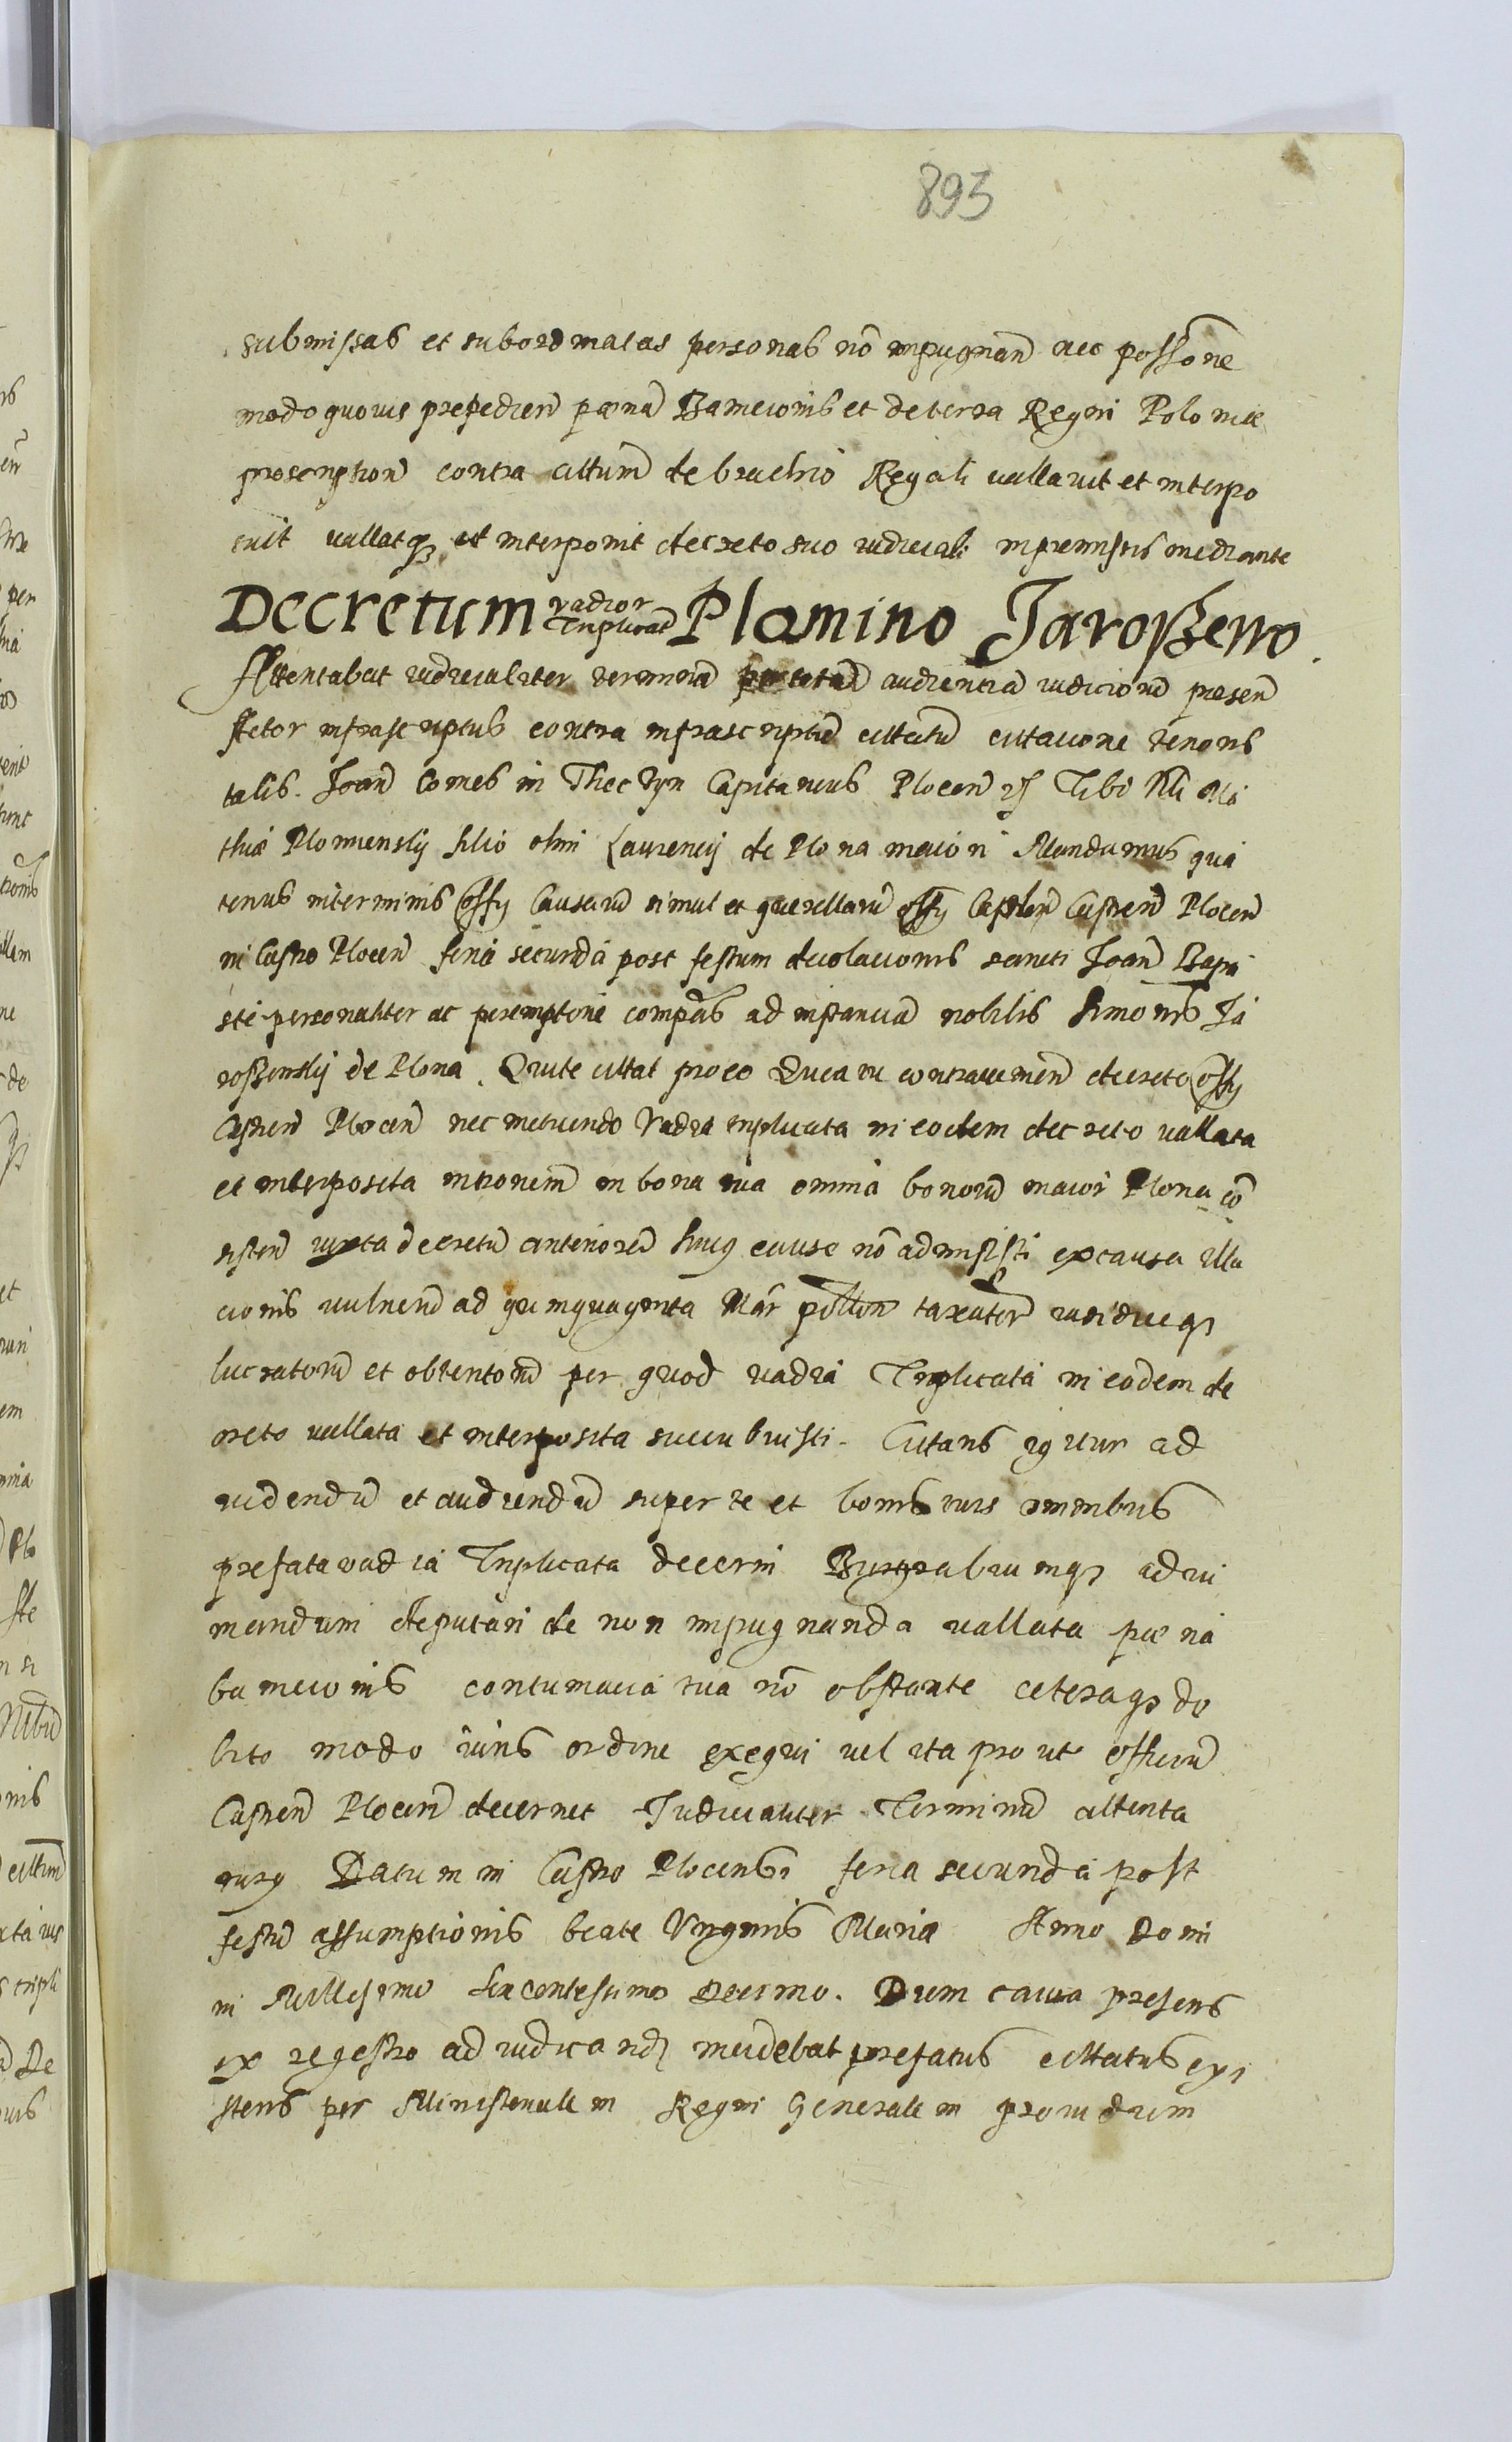 893
submissas et subordinatas personas nõ impugnañ nec possõne
modo quouis prepedieñ pœnã Bannicionis et de terra Regni Poloniæ
proscriptionẽ contra cittum̃ de brachio Regali vallavit et interpo
suit vallatqȝ et interponit decreto suo iudiciali in premissis mediante
Decretum vadior Triplicat Plomino Jaroszewo
Attentabat iudicialiter terminũ audientiã iudiciorũ presen̄
Actor infrascriptus contra infrascriptũ cittatũ cittacione tenoris
talis. Joan̄ Comes in Theczyn Capitaneus Plocen̄ Tibi Nli Ma
thiæ Plominsky filio olim Laurencij de Plona maiori Mandamus qua
tenus in terminis offij Causarũ simul et querellarũ offij Castren̄ Plocen̄
in Castro Plocen̄ feria secunda post festum decolacionis sancti Joan̄ Bapti
ste personaliter ac peremptorie compeas ad instanciã nobilis Simonis Ja
roszewskij de Plona. Qui te cittat pro eo Quia tu contraueniend decreto offij
Castren̄ Plocen̄ nec metuendo vadia triplicata in eodem decreto vallata
et interposita intronem̃ in bona tua omnia bonorũ maiori Plona cõ
sisten̄ iuxta decretũ anteriorẽ huiq cause nõ admisisti ex causa illa
cionis vulnerũ ad quinquaginta Mar pollon taxator̃ iudiciiqȝ
lucratorũ et obtentorũ per quod vadia Triplicata in eodem de
creto vallata et interposita succubuisti. Cittaris igitur ad
videndũ et audiendũ super te et bonis tuis omnibus
prefata vadia Triplicata decerni Burgrabiumqȝ ad ui
mandum deputari de non impugnanda vallata pœna
bannicionis contumacia tua nõ obstante ceteraqȝ de
bito modo iuris ordine exequi vel ita pro ut officiũ
Castren̄ Plocen̄ decernet Judicialiter Terminũ attenta
turq Datum in Castro Plocensi feria secunda post
festũ assumptionis beate Virginis Maria Anno Domi
ni Millesimo Sexcentesimo Decimo. Dum causa presens
ex regestro ad iudicandũ incidebat prefatus cittatus exi
stens per Ministerialem Regni Generalem prouidum